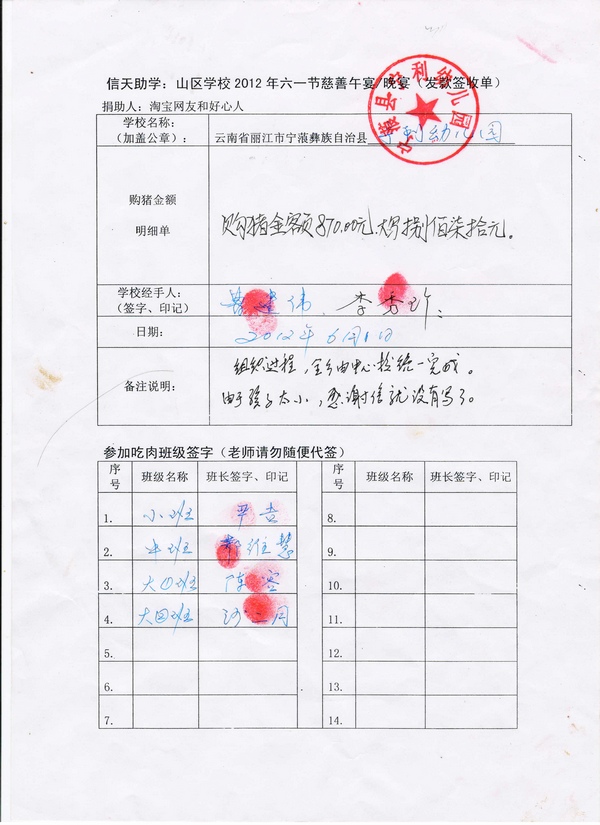 信天助学：山区学校2012年六一节慈善午宴/晚宴（发款签收单）
捐助人：淘宝网友和好心人
学校名称：
（加盖公章）：
云南省丽江市宁蒗彝族自治县 宁利幼儿园
宁蒗县宁利幼儿园
购猪金额
明细单
购猪金额870.00元.大写捌佰柒拾元。
学校经手人：
（签字、印记）
建伟 李秀珍
日期：
2012年6月1日
备注说明：
组织过程，全乡由中心校统一完成。
由于孩子太小，感谢信就没有写了。
参加吃肉班级签字（老师请勿随便代签）
序号 班级名称 班长签字、印记 序号 班级名称 班长签字、印记
1. 小班 平吉 8.
2. 中班 维慧 9.
3. 大班 陈 10.
4. 大班 11.
5. 12.
6. 13.
7. 14.